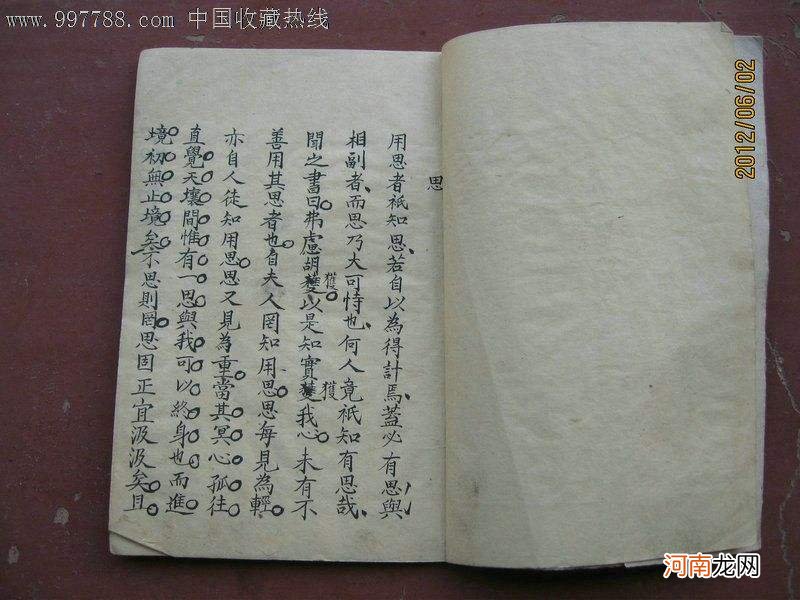 www.997788.com 中国收藏热线
2012/06/02
思
用思者祇知思若自以為得計焉蓋必有思與
相副者而思乃大可恃也何人竟祇知有思哉
聞之書曰弗慮胡獲以是知實獲我心未有不
善用其思者也自夫人罔知用思思每見為輕
亦自人徒知用思思又見為重當其冥心孤往
直覺天壤間惟有一思與我可以終身也而進
境初無止境矣不思則罔思固正宜汲汲矣且
河南龙网